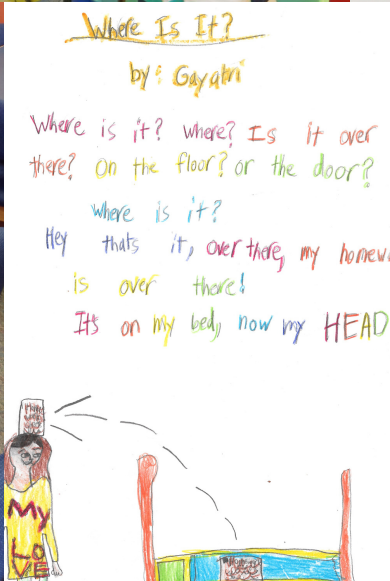 Where Is It?
by: Gayatri
Where is it? where? Is it over
there? On the floor? or the door?
where is it?
Hey thats it, over there, my homew
is over there!
It's on my bed, now my HEAD
My
LOVE